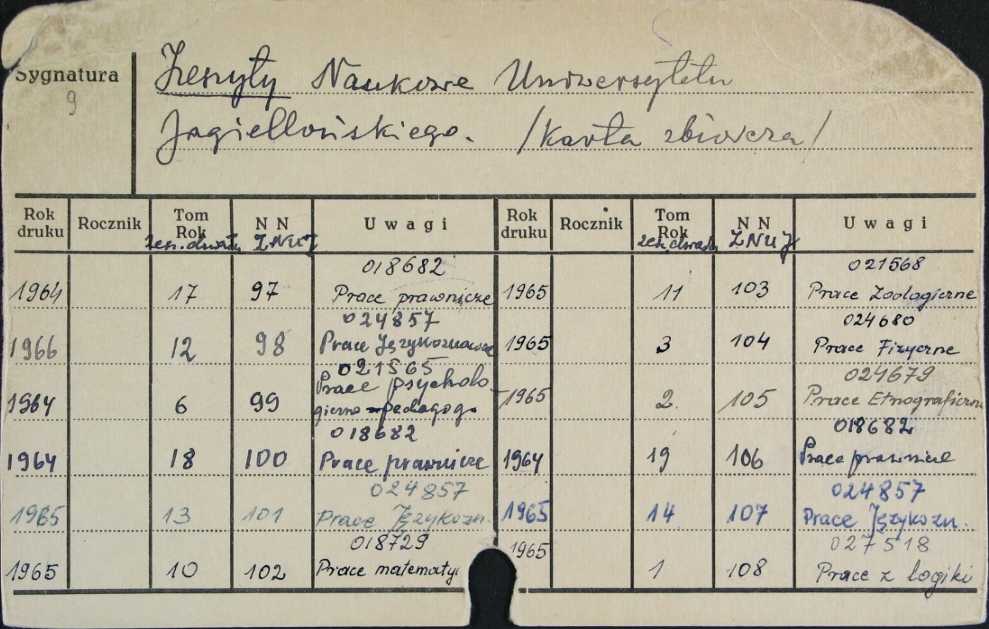 Sygnatura Zeszyty Naukowe Uniwersytetu
9
Jagiellońskiego. /Karta zbiorcza/
Rok druku Rocznik Tom Rok N N Uwagi Rok druku Rocznik Tom Rok N N Uwagi
ZNUJ ZNUJ
018682 021568
1964 17 97 Prace prawnicze 1965 11 103 Prace Zoologiczne
024857 024680
1966 12 98 Prace Językoznawcze 1965 3 104 Prace Fizyczne
021565 024679
Prace psycholo
1964 6 99 giczno-pedagog. 1965 2. 105 Prace Etnograficzne
018682 018682
1964 18 100 Prace prawnicze 1964 19 106 Prace prawnicze
024857 024857
1965 13 101 Prace Językozn. 1965 14 107 Prace Językozn.
018729 027518
1965 10 102 Prace matematy 1965 1 108 Prace z logiki